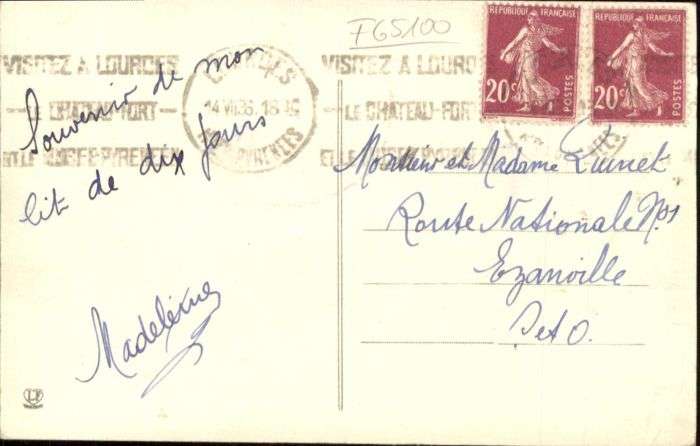 F65100
REPUBLIQUE FRANÇAISE
20c
POSTES
REPUBLIQUE FRANÇAISE
20c
POSTES
VISITEZ A LOURDES
LE CHATEAU-FORT
ET LE MUSEE PYRENEEN
LOURDES
14 VII 36. 18
PYRENEES
VISITEZ A LOURDES
LE CHATEAU-FORT
ET LE MUSEE PYRENEEN
Souvenir de mon
lit de dix jours
Madeleine
Monsieur et Madame Quinet
Route Nationale N°1
Ezanville
S et O.